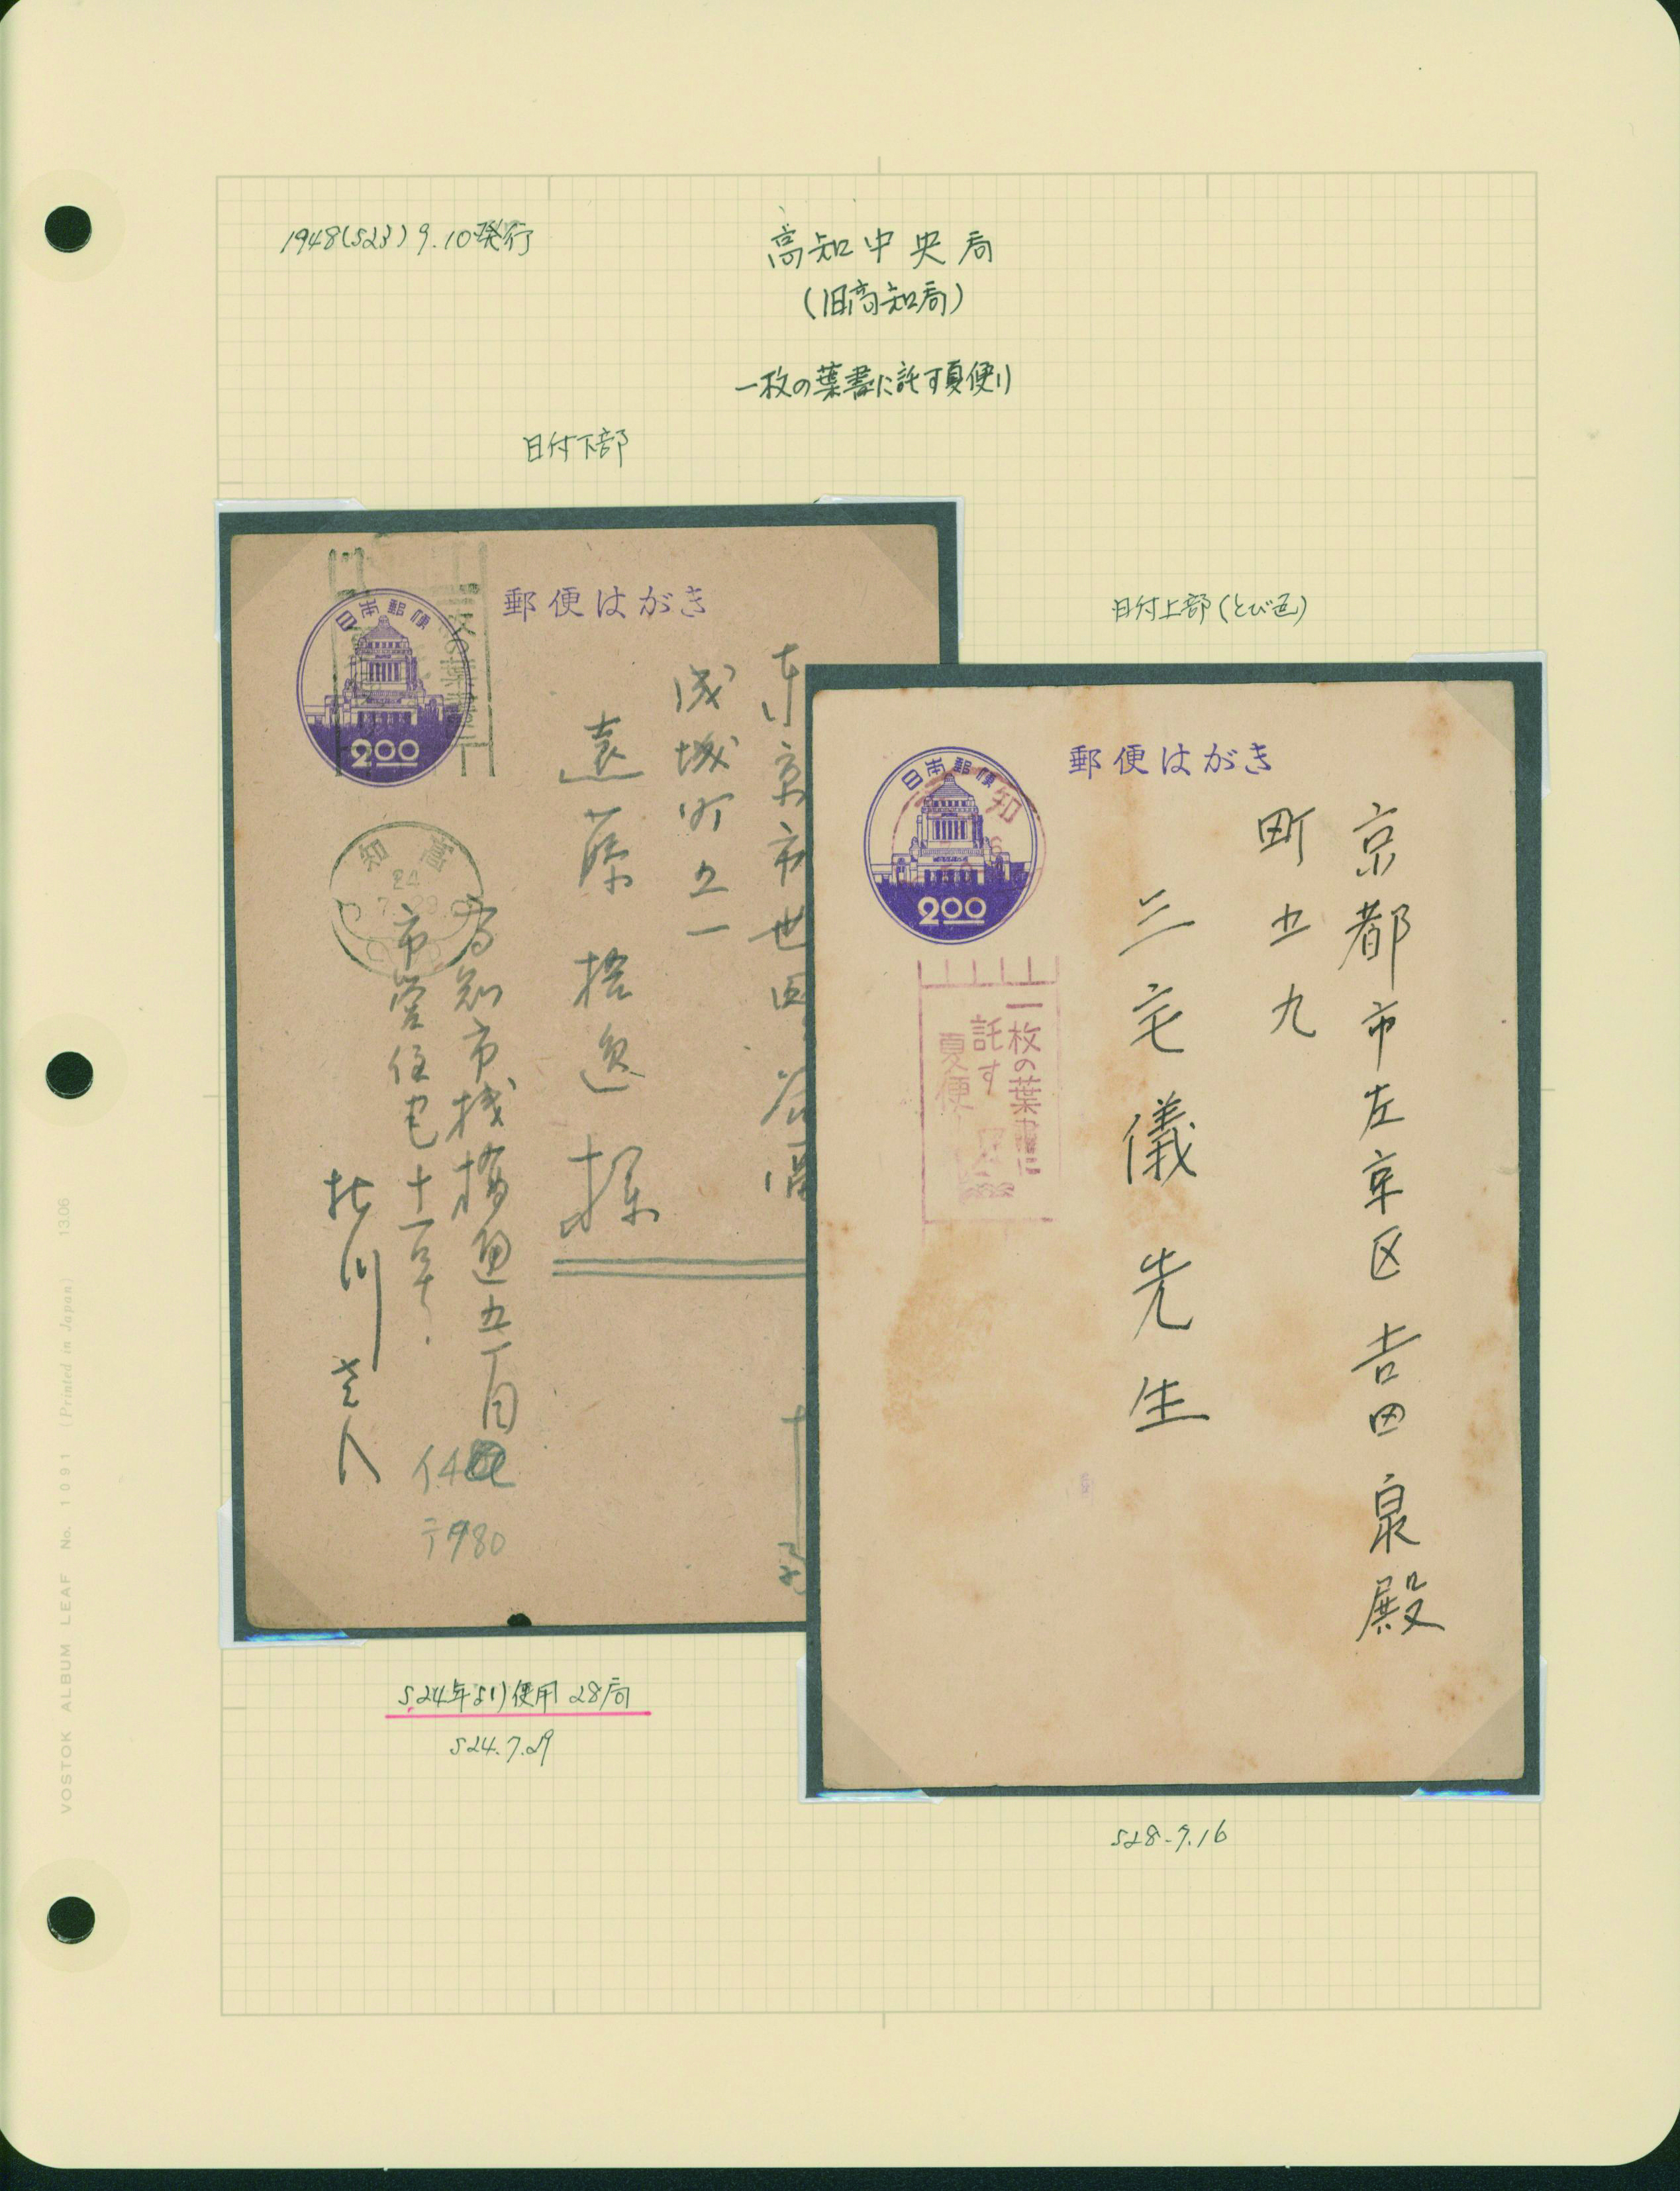 1948(S23)9.10発行
高知中央局
(旧高知局)
一枚の葉書に託す夏便り
日付下部
日付上部(とび色)
日本郵便
2.00
郵便はがき
高知
24
成城町
遠藤
様
市営住宅十一
高知市桟橋通五丁目
日本郵便
2.00
郵便はがき
知
一枚の葉書に
託す
夏便
京都市左京区吉田泉殿
町五九
三宅儀先生
S24年より使用 28局
S24.7.29
S28.7.16
VOSTOK ALBUM LEAF No. 1091 (Printed in Japan) 13.06